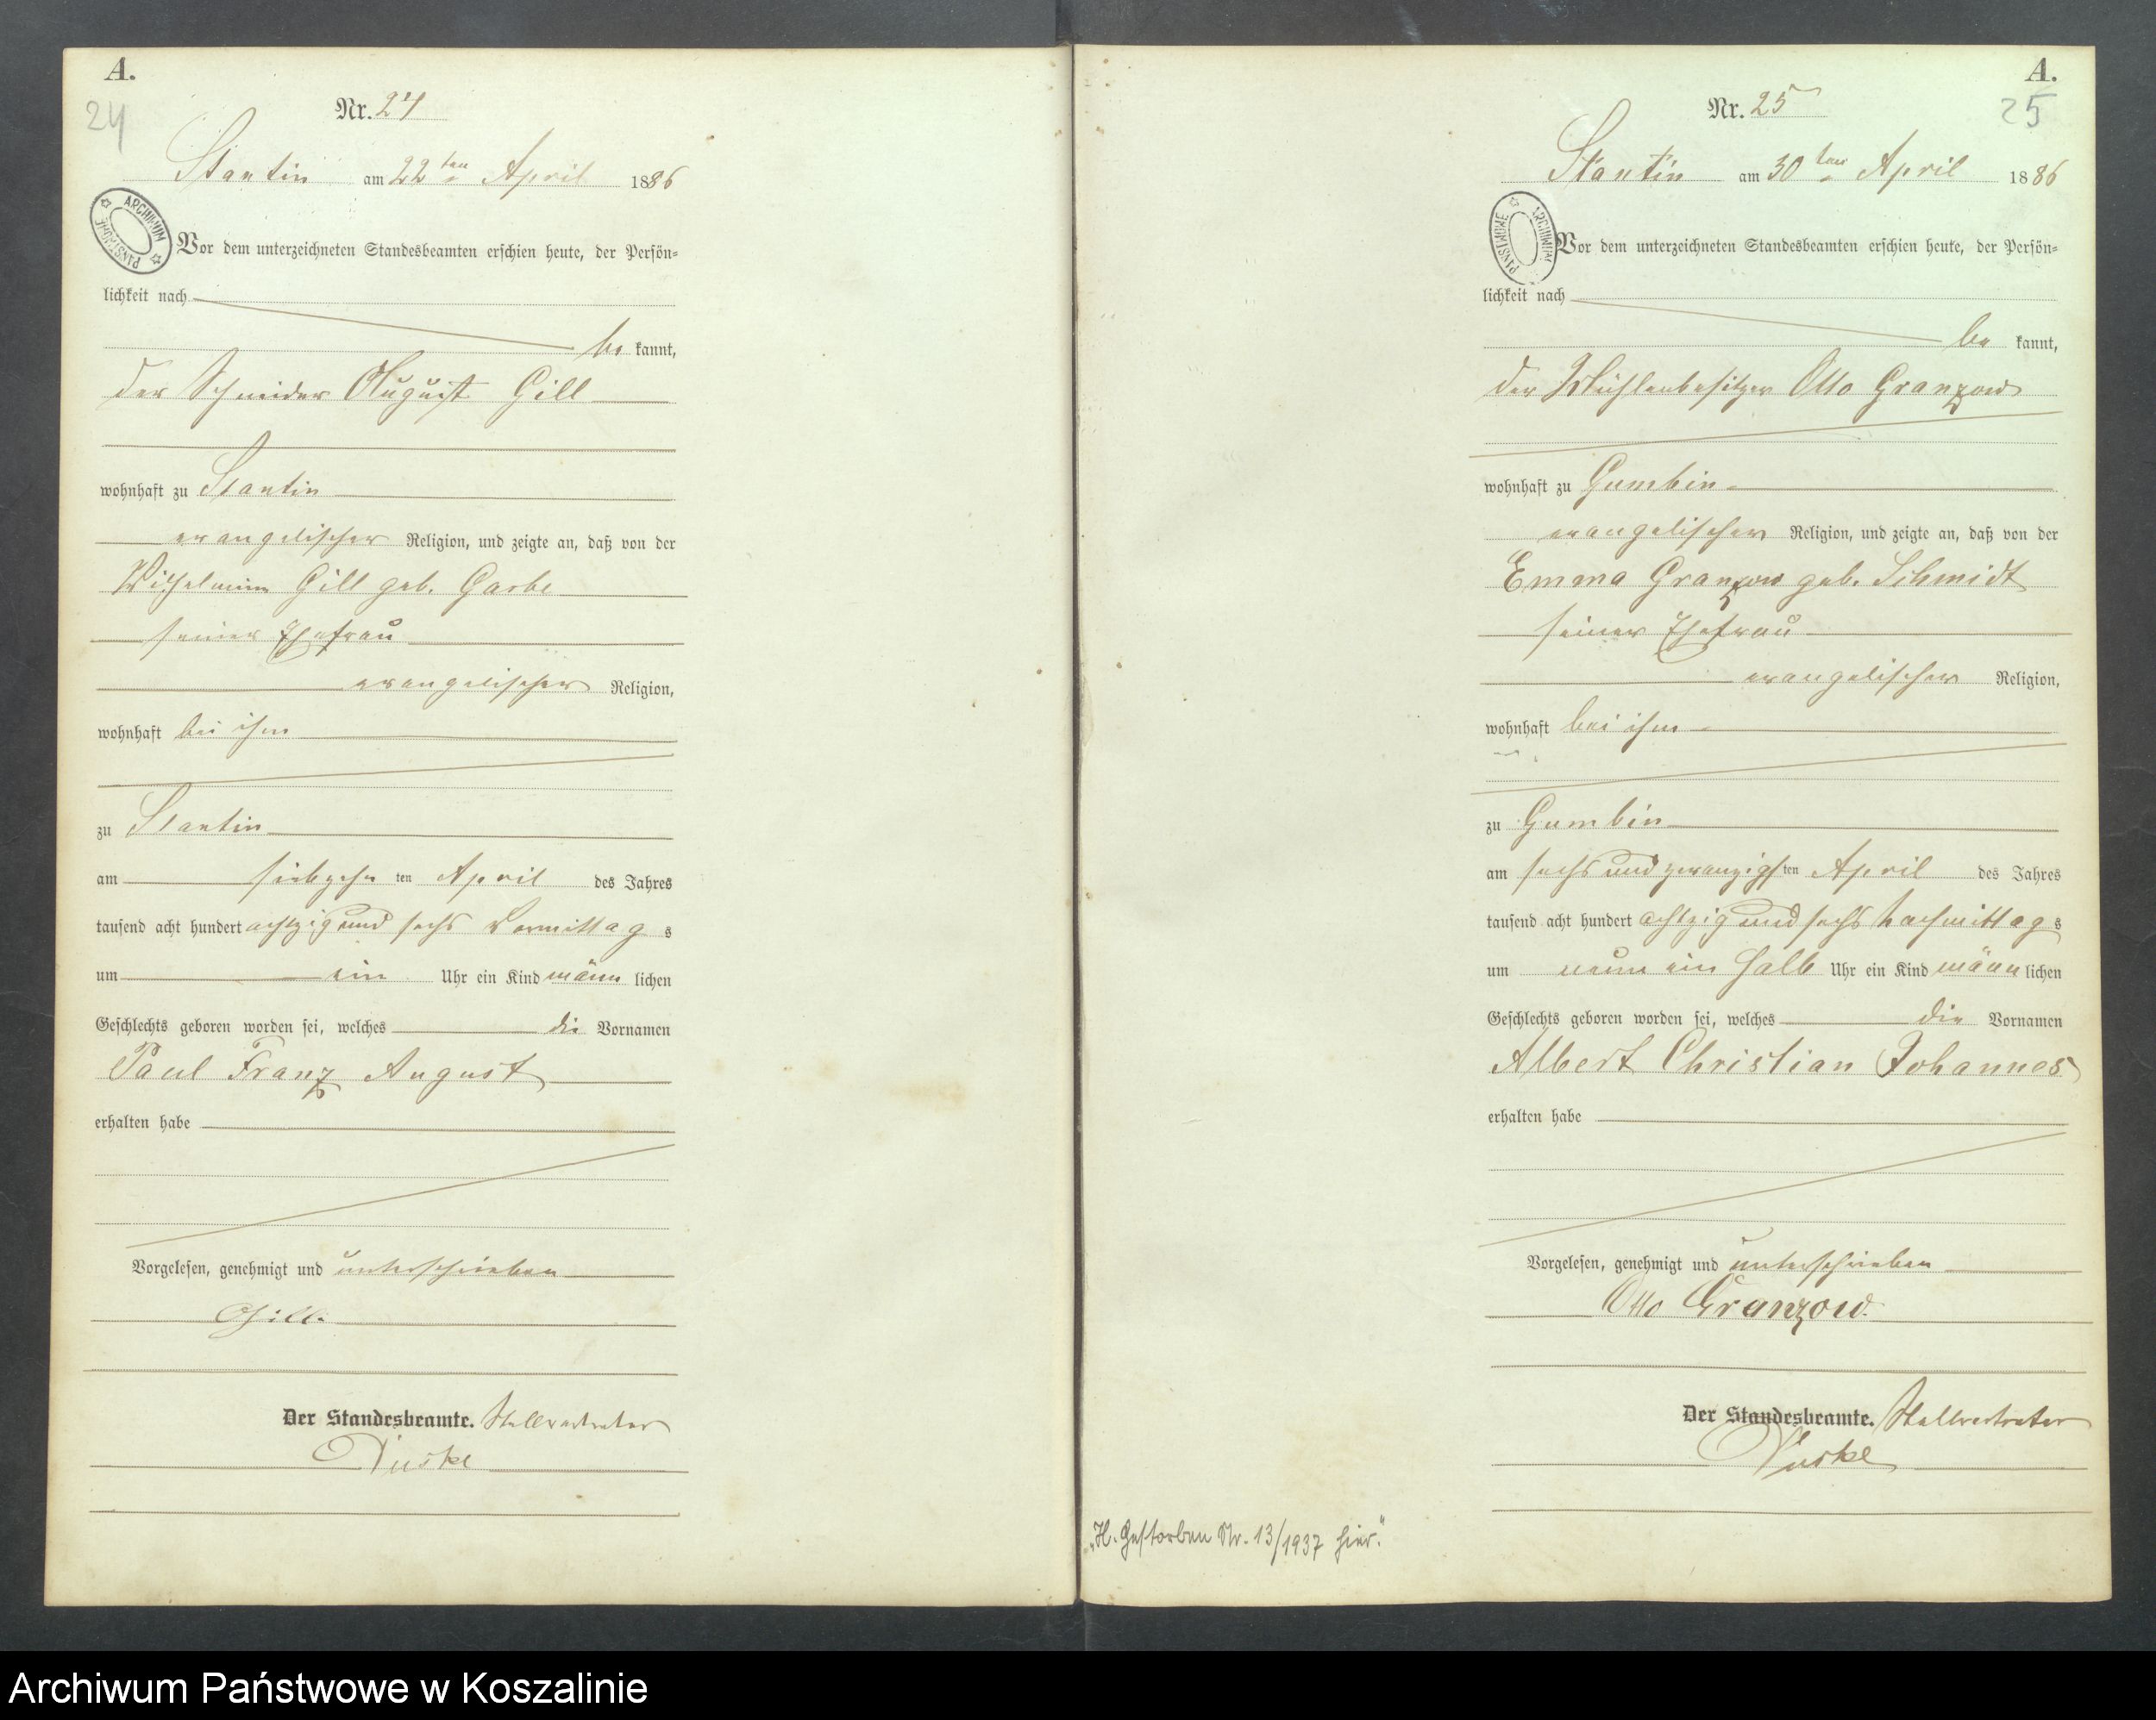 A.
24
Nr. 24
Stantin am 22ten April 1886
ARCHIWUM PAŃSTWOWE
Vor dem unterzeichneten Standesbeamten erschien heute, der Persön-
lichkeit nach
be kannt,
der Schneider August Gill
wohnhaft zu Stantin
evangelischer Religion, und zeigte an, daß von der
Wilhelmine Gill geb. Garbe
seiner Ehefrau
evangelischer Religion,
wohnhaft bei ihm
zu Stantin
am siebzehn ten April des Jahres
tausend acht hundert achtzig und sechs Vormittag s
um ein Uhr ein Kind männ lichen
Geschlechts geboren worden sei, welches die Vornamen
Paul Franz August
erhalten habe
Vorgelesen, genehmigt und unterschrieben
Gill.
Der Standesbeamte. Stellvertreter
A.
25
Nr. 25
Stantin am 30ten April 1886
ARCHIWUM PAŃSTWOWE
Vor dem unterzeichneten Standesbeamten erschien heute, der Persön-
lichkeit nach
be kannt,
der Mühlenbesitzer Otto Granzow
wohnhaft zu Gumbin
evangelischer Religion, und zeigte an, daß von der
Emma Granzow geb. Schmidt
seiner Ehefrau
evangelischer Religion,
wohnhaft bei ihm
zu Gumbin
am sechs und zwanzigsten April des Jahres
tausend acht hundert achtzig und sechs Nachmittag s
um neun ein halb Uhr ein Kind männ lichen
Geschlechts geboren worden sei, welches die Vornamen
Albert Christian Johannes
erhalten habe
Vorgelesen, genehmigt und unterschrieben
Otto Granzow.
Der Standesbeamte. Stellvertreter
"H. Gestorben Nr. 13/1937 hier."
Archiwum Państwowe w Koszalinie